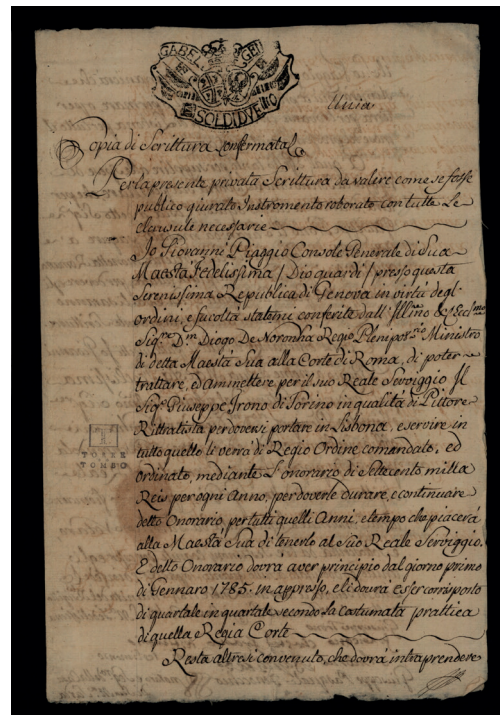 GABEL GEN
SOLDI DVE
Unica
Copia di Scrittura Confermata
Per la presente privata Scrittura da valere come se fosse
publico giurato Instromento roborato con tutte Le
clausule necessarie
Io Giovanni Piaggio Console Generale di Sua
Maestà Fedelissima / Dio guardi / presso questa
Serenissima Republica di Genova in virtù degl'
ordini, e facoltà statemi conferite dall' Ill.mo & Ecel.mo
Sig.re D.n Diogo De Noronha Regio Plenipot.rio Ministro
di detta Maestà Sua alla Corte di Roma, di poter
trattare, ed amettere per il suo Reale Serviggio Il
Sig.r Giuseppe Trono di Torino in qualità di Pittore
Rittratista per doversi portare in Lisbona, e servire in
tutto quello li verrà di Regio Ordine comandato, ed
ordinato, mediante L'onorario di Settecento milla
Reis per ogni Anno, per doverle durare, e continuare
detto Onorario, per tutti quelli Anni, e tempo che piacerà
alla Maestà Sua di tenerlo al Suo Reale Serviggio.
E detto Onorario dovrà aver principio dal giorno primo
di Gennaro 1785. in appresso, e li dovrà esser corrisposto
di quartale in quartale secondo la costumata prattica
di quella Regia Corte
Resta altresi convenuto, che dovrà intraprendere
TORRE
TOMBO